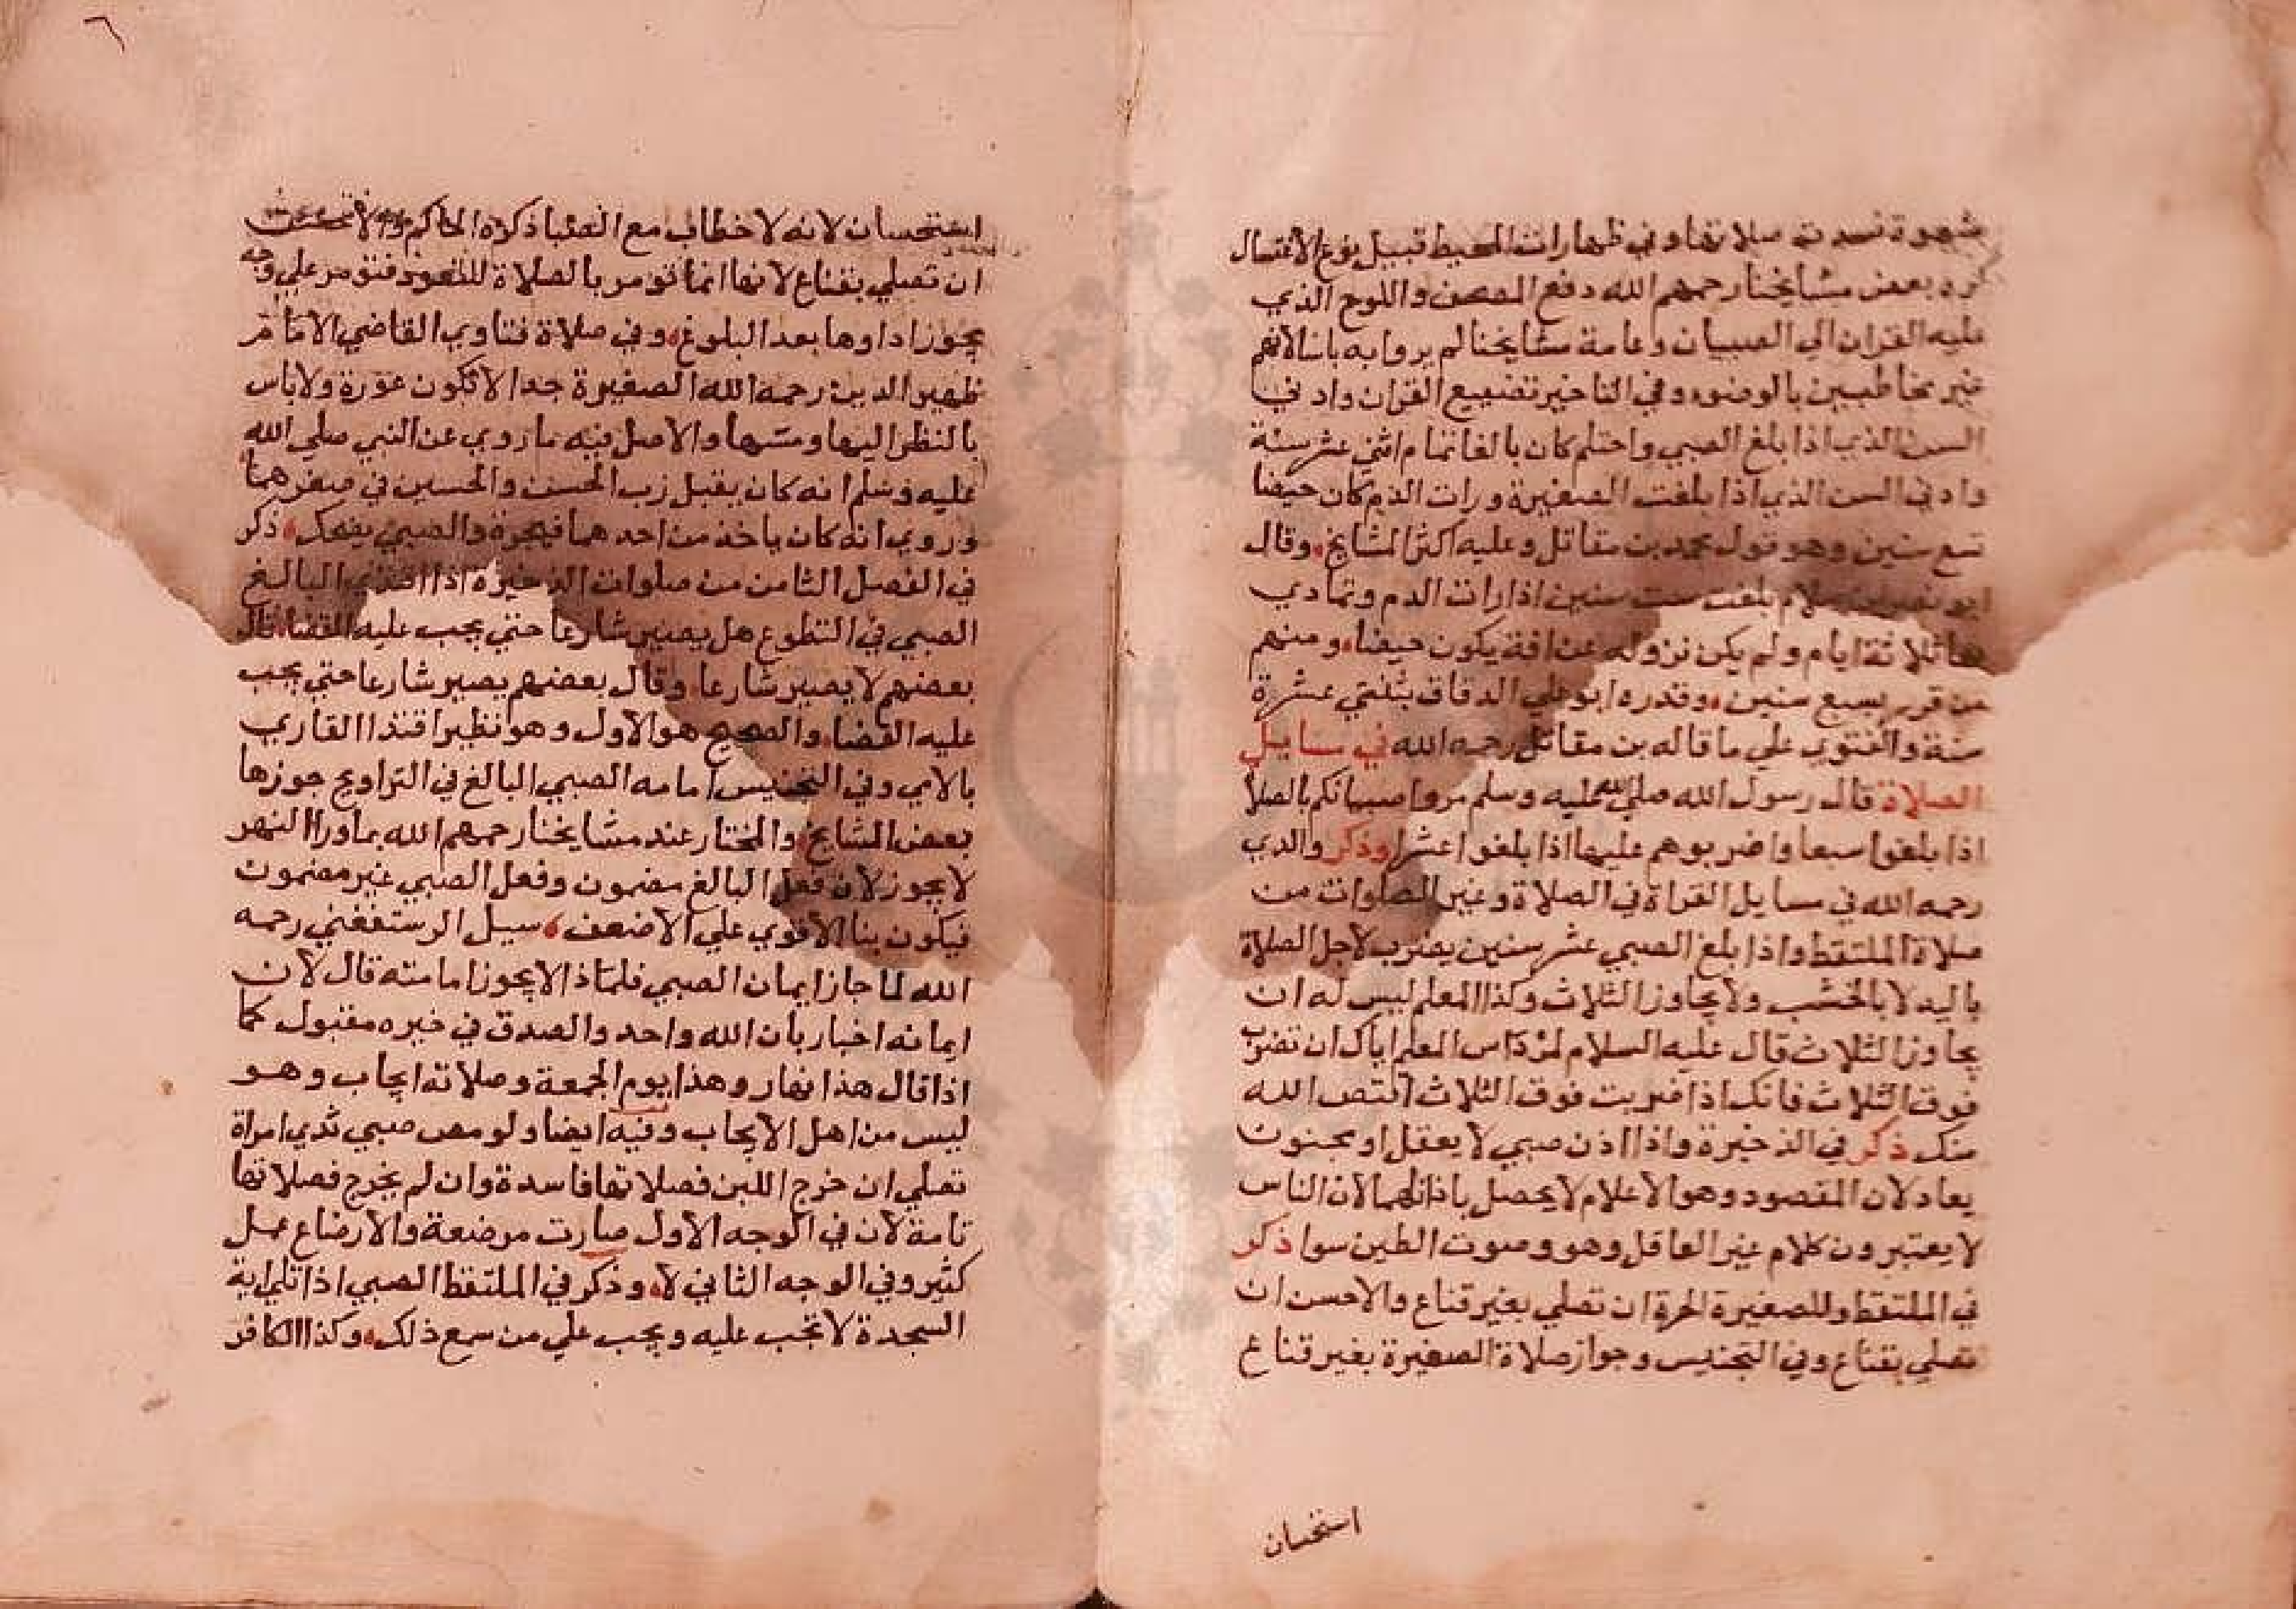 شهوة فسدت صلاتها وفي طهارات المحيط قبيل نوع الاغتسال
كره بعض مشايخنا رحمهم الله دفع المصحف واللوح الذي
عليه القران الى الصبيان وعامة مشايخنا لم يروا به باسا لانهم
غير مخاطبين بالوضوء وفي التاخير تضييع القران وادني
السن الذي اذا بلغ الصبي واحتلم كان بالغا تمام اثني عشر سنة
وادني السن الذي اذا بلغت الصغيرة ورات الدم كان حيضا
تسع سنين وهو قول محمد بن مقاتل وعليه اكثر المشايخ وقال
ابو نصر بن سلام بلغت ست سنين اذا رات الدم وتمادي
بها ثلاثة ايام ولم يكن نزوله عن افة يكون حيضا ومنهم
من قرر بسبع سنين وقدره ابو علي الدقاق بثنتي عشرة
سنة والفتوي علي ما قاله بن مقاتل رحمه الله في مسايل
الصلاة قال رسول الله صلى الله عليه وسلم مروا صبيانكم بالصلا
اذا بلغوا سبعا واضربوهم عليها اذا بلغوا عشرا وذكر والدي
رحمه الله في مسايل القراة في الصلاة وغير الصلوات من
صلاة الملتقط واذا بلغ الصبي عشر سنين يضرب لاجل الصلاة
باليد لا بالخشب ولا يجاوز الثلاث وكذا المعلم ليس له ان
يجاوز الثلاث قال عليه السلام لمرداس المعلم اياك ان تضرب
فوق الثلاث فانك اذا ضربت فوق الثلاث اقتص الله
منك ذكر في الذخيرة واذا اذن صبي لا يعقل او مجنون
يعاد لان المقصود وهو الاعلام لا يحصل باذانهما لان الناس
لا يعتبرون كلام غير العاقل وهو وصوت الطين سوا ذكر
في الملتقط وللصغيرة الحرة ان تصلي بغير قناع والاحسن ان
تصلي بقناع وفي التجنيس وجواز صلاة الصغيرة بغير قناع
استحسان
٦
استحسان لانه لا خطاب مع الصبا ذكره الحاكم والاحسن
ان تصلي بقناع لانها انما تومر بالصلاة للتعود فتومر علي وجه
يجوز اداوها بعد البلوغ وفي صلاة فتاوي القاضي الامام
ظهير الدين رحمه الله الصغيرة جدا لا تكون عورة ولا باس
بالنظر اليها ومسها والاصل فيه ما روي عن النبي صلي الله
عليه وسلم انه كان يقبل زب الحسن والحسين في صغرهما
وروي انه كان ياخذ من احدهما فيجره والصبي يضحك ذكر
في الفصل الثامن من صلوات الذخيرة اذا اقتدي البالغ
الصبي في التطوع هل يصير شارعا حتي يجب عليه القضا قال
بعضهم لا يصير شارعا وقال بعضهم يصير شارعا حتي يجب
عليه القضا والصحيح هو الاول وهو نظير اقتدا القاري
بالامي وفي التجنيس امامه الصبي البالغ في التراويح جوزها
بعض المشايخ والمختار عند مشايخنا رحمهم الله بماورا النهر
لا يجوز لان فعل البالغ مضمون وفعل الصبي غير مضمون
فيكون بنا الاقوي علي الاضعف سيل الرستغفني رحمه
الله لما جاز ايمان الصبي فلماذا لا يجوز امامته قال لان
ايمانه اخبار بان الله واحد والصدق في خبره مقبول كما
اذا قال هذا نهار وهذا يوم الجمعة وصلاته ايجاب وهو
ليس من اهل الايجاب وفيه ايضا ولو مص صبي ثدي امراة
تصلي ان خرج اللبن فصلاتها فاسدة وان لم يخرج فصلاتها
تامة لان في الوجه الاول صارت مرضعة والارضاع عمل
كثير وفي الوجه الثاني لا وذكر في الملتقط الصبي اذا تلي اية
السجدة لا تجب عليه ويجب علي من سمع ذلك وكذا الكافر